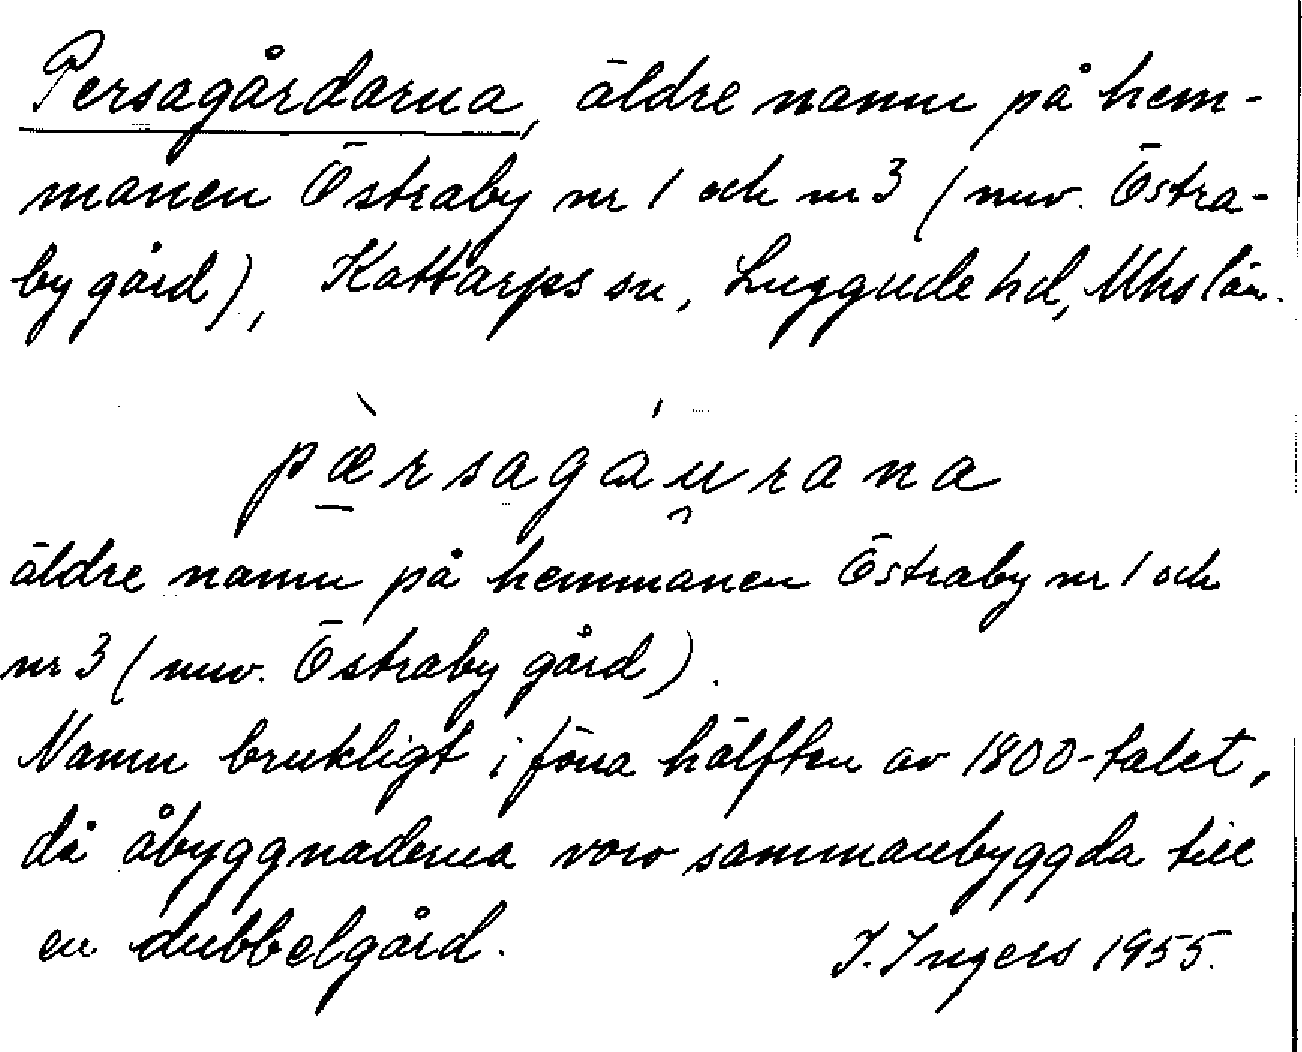 Persagårdarna, äldre namn på hem-
manen Östraby nr 1 och nr 3 (nuv. Östra-
by gård), Kattarps sn, Luggude hd, Mhs län.
pæ̀rsagáu̯rana
äldre namn på hemmanen Östraby nr 1 och
nr 3 (nuv. Östraby gård).
Namn brukligt i förra hälften av 1800-talet,
då åbyggnaderna voro sammanbyggda till
en dubbelgård. I. Ingers 1955.